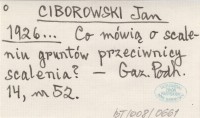 CIBOROWSKI Jan
1926... Co mówią o scale-
niu gruntów przeciwnicy
scalenia? - Gaz. Podh.
14, nr 52.